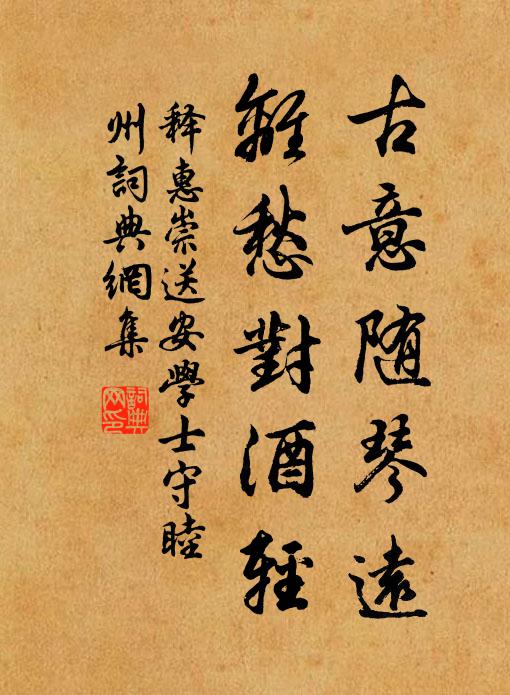 古意随琴遠
離愁對酒輕
释惠崇送安學士守睦
州詞典網集
詞典
网印